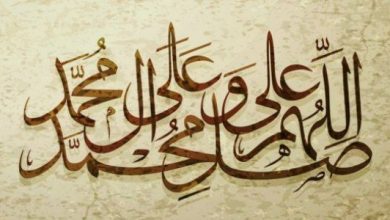 اللّهم صل على محمّد وعلى ال محمّد